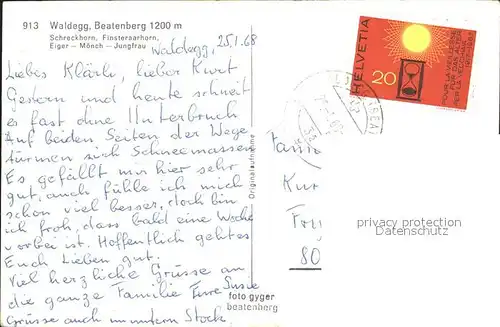 913 Waldegg, Beatenberg 1200 m
Schreckhorn, Finsteraarhorn,
Eiger — Mönch — Jungfrau
Waldegg, 25.1.68
Liebes Klärli, lieber Kurt
Gestern und heute schneit
es fast ohne Unterbruch
Auf beiden Seiten der Wege
türmen sich Schneemassen
Es gefällt mir hier sehr
gut, auch fühle ich mich
schon viel besser, doch bin
ich froh, dass bald eine Woche
vorbei ist. Hoffentlich geht es
Euch Lieben gut.
Viel herzliche Grüsse an
die ganze Familie Eure Susie
Grüsse auch im untern Stock.
Originalaufnahme
foto gyger
beatenberg
HELVETIA
20
POUR LA VIEILLESSE
FÜR DAS ALTER
PER LA VECCHIAIA
Fami
Kur
80
privacy protection
Datenschutz